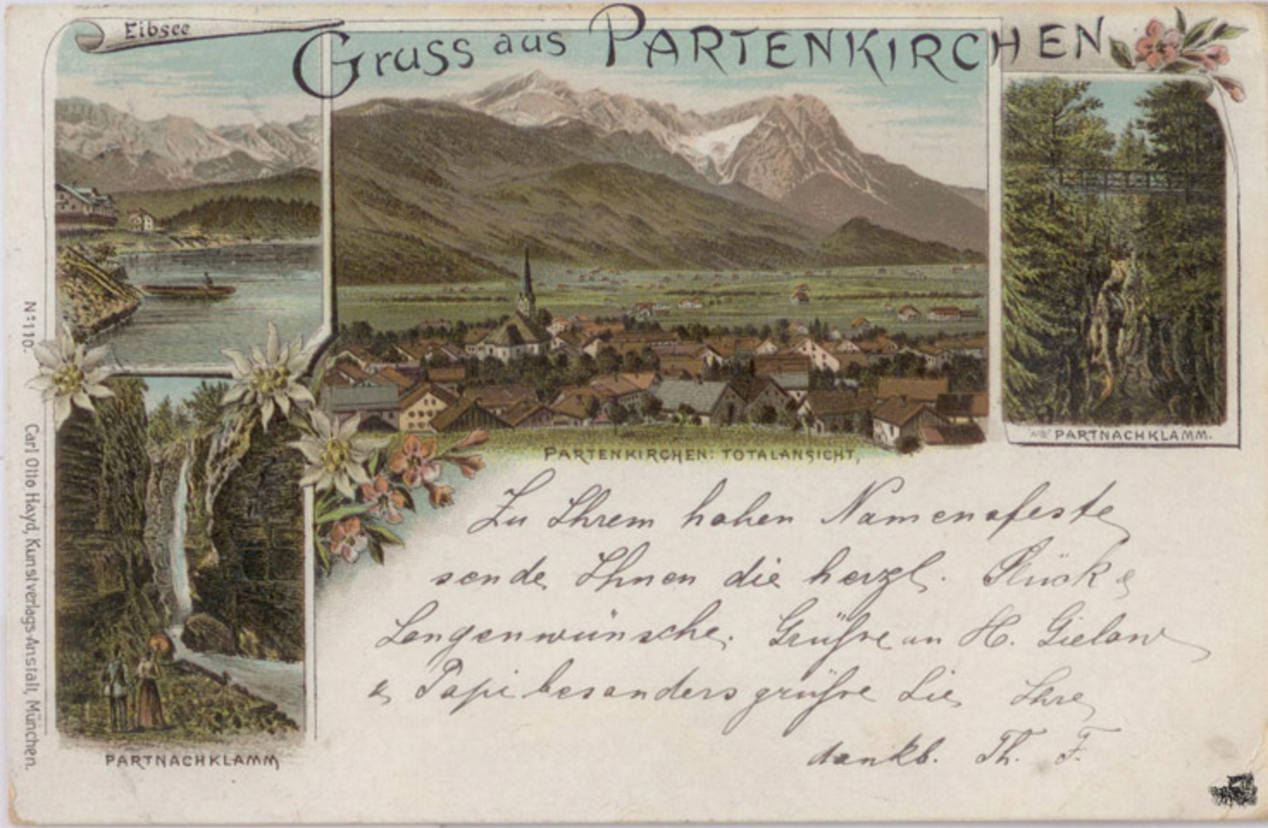 Eibsee
Gruss aus PARTENKIRCHEN
PARTNACHKLAMM.
PARTENKIRCHEN: TOTALANSICHT,
PARTNACHKLAMM
Nº 110.
Carl Otto Hayd, Kunstverlags-Anstalt, München.
Zu Ihrem hohen Namensfeste
sende Ihnen die herzl. Glück &
Segenwünsche. Grüße an H.
& Papi besonders grüße Sie, Ihre
dankb. Th. F.